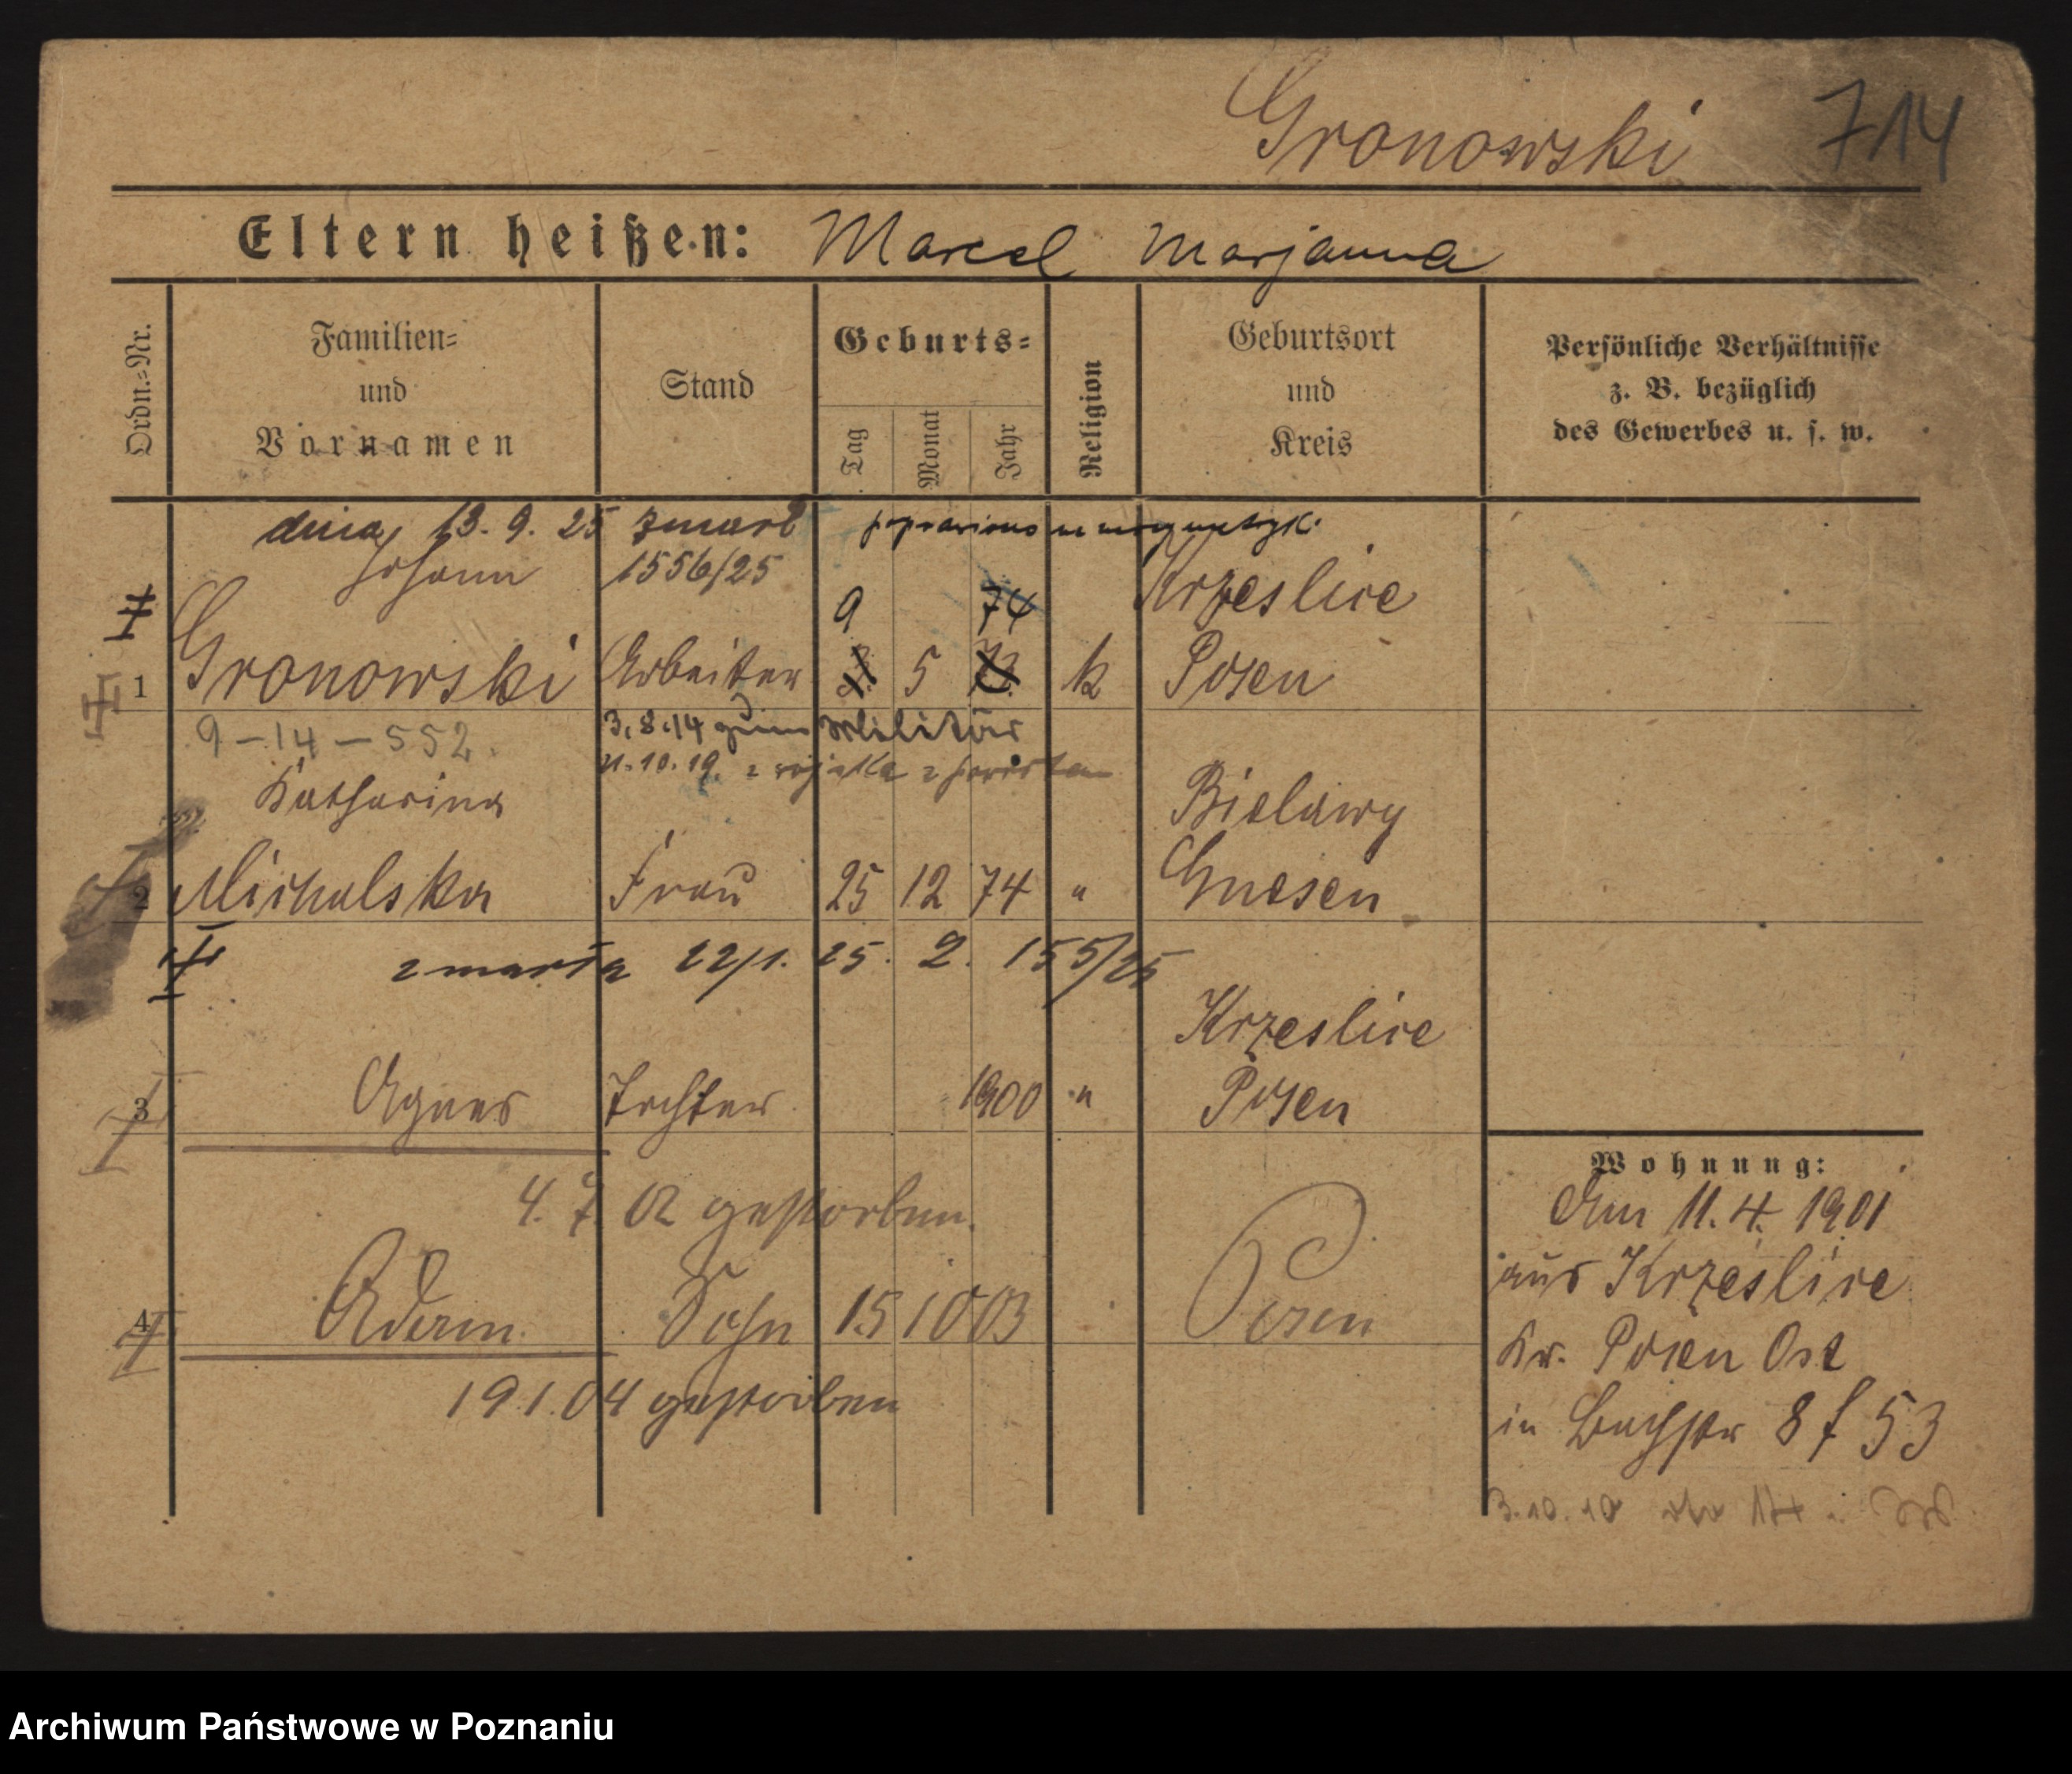 Gronowski 714
Eltern heißen: Marcel Marjanna
Ordn.-Nr.
Familien- und Vornamen
Stand
Geburts-
Tag Monat Jahr
Religion
Geburtsort und Kreis
Persönliche Verhältnisse
z. B. bezüglich
des Gewerbes u. s. w.
dnia 13. 9. 25 zmarł
Johann 1556/25 Krzeslice
9 74
1 Gronowski Arbeiter 5 k Posen
9-14-552. 3.8.14 zum Militär
21.10.19. z wojska z powrotem
Katharina Bielawy
2 Michalska Frau 25 12 74 " Gnesen
zmarła 22/1. 25. 2. 155/25
Krzeslice
3 Agnes Tochter 1900 " Posen
4. 7. 02 gestorben.
4 Adam Sohn 15 10 03 Posen
19.1.04 gestorben
Wohnung:
Am 11.4. 1901
aus Krzeslice
Kr. Posen Ost
in Bachstr 8 f 53
3.10.10
Archiwum Państwowe w Poznaniu